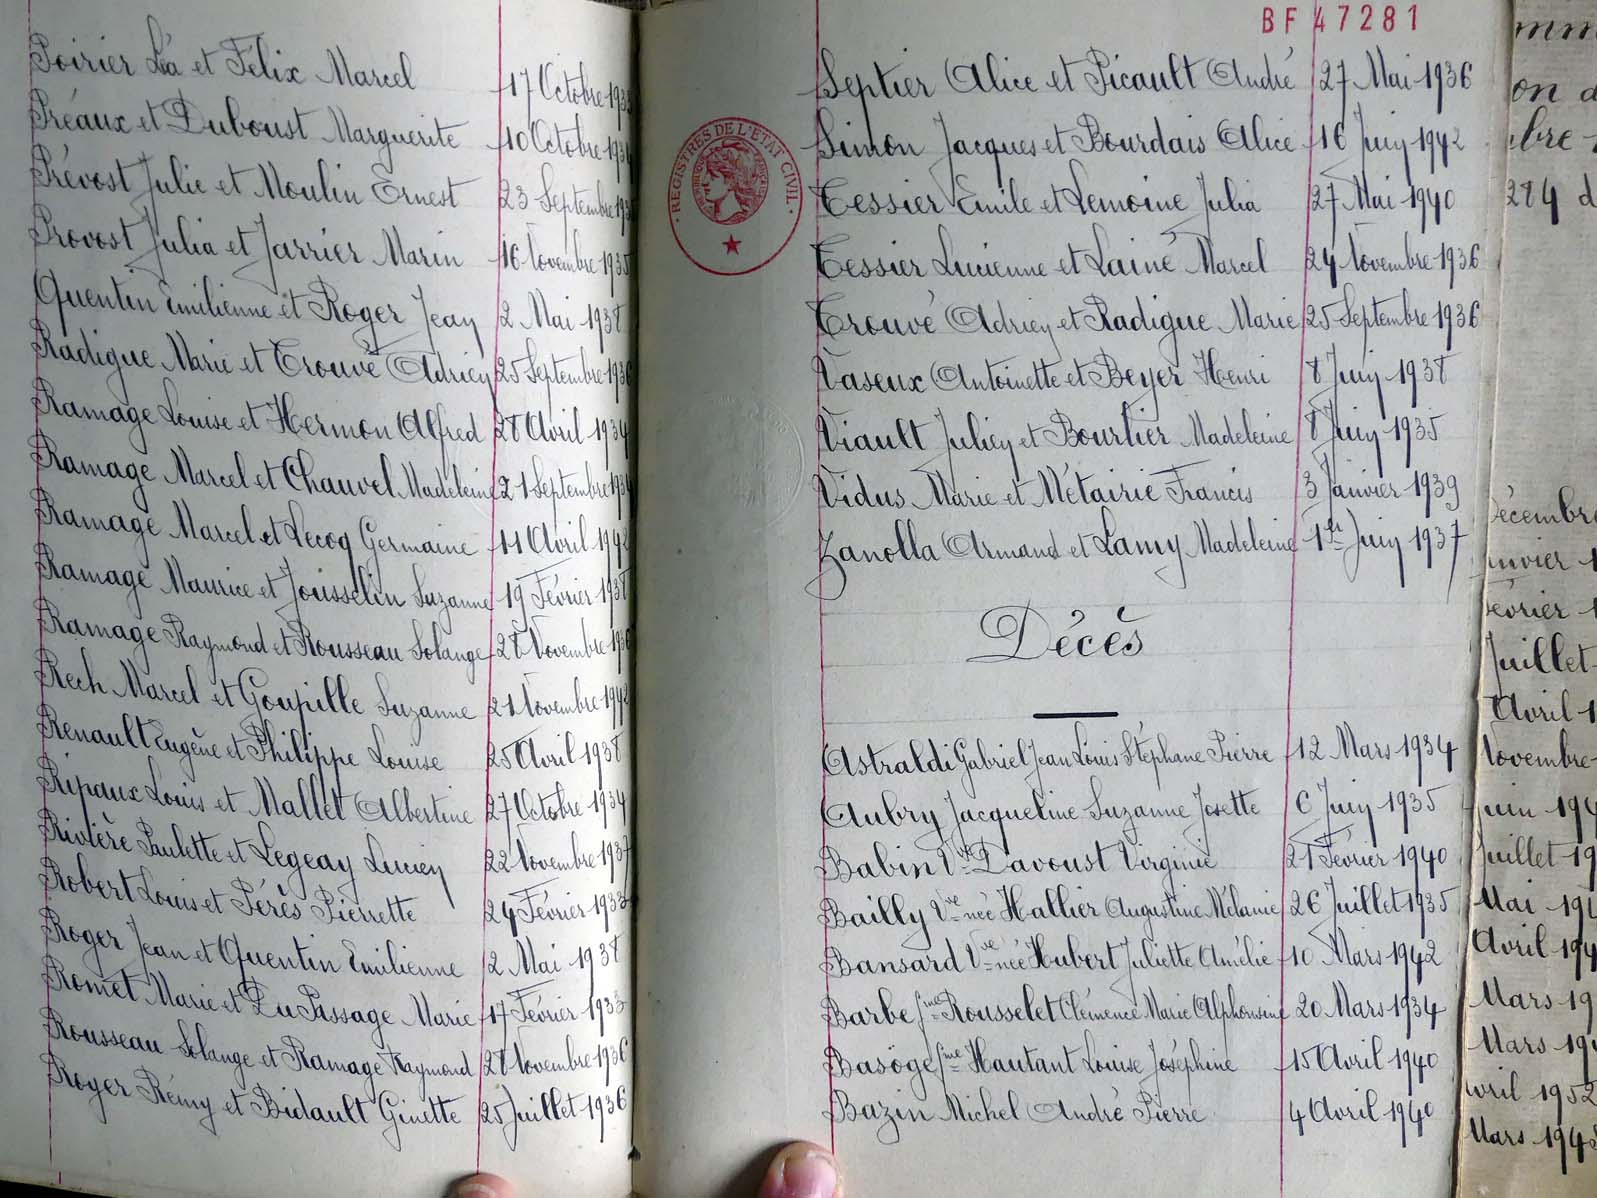 Poirier Léa et Félix Marcel 17 Octobre
Préaux et Duboust Marguerite 10 Octobre
Prévost Julie et Moulin Ernest 23 Septembre
Provost Julia et Jarrier Marin 16 Novembre 1935
Quentin Emilienne et Roger Jean 2 Mai 1938
Radigue Marie et Trouvé Adrien 25 Septembre 1936
Ramage Louise et Hermon Alfred 28 Avril 1934
Ramage Marcel et Chauvel Madeleine 21 Septembre
Ramage Marcel et Lecoq Germaine 11 Avril 1942
Ramage Maurice et Jousselin Suzanne 19 Février 1938
Ramage Raymond et Rousseau Solange 28 Novembre 1936
Rech Marcel et Goupille Suzanne 21 Novembre 1942
Renault Eugène et Philippe Louise 25 Avril 1938
Ripaux Louis et Mallet Albertine 27 Octobre 1934
Rivière Paulette et Legeay Lucien 22 Novembre 1937
Robert Louis et Pérès Pierrette 24 Février 1933
Roger Jean et Quentin Emilienne 2 Mai 1938
Romet Marie et Du Passage Marie 17 Février 1933
Rousseau Solange et Ramage Raymond 28 Novembre 1936
Royer Rémy et Bidault Ginette 25 Juillet 1936
BF 47281
REGISTRES DE L'ETAT CIVIL
Septier Alice et Picault André 27 Mai 1936
Simon Jacques et Bourdais Alice 16 Juin 1942
Tessier Emile et Lemoine Julia 27 Mai 1940
Tessier Lucienne et Lainé Marcel 24 Novembre 1936
Trouvé Adrien et Radigue Marie 25 Septembre 1936
Vaseux Antoinette et Beyer Henri 8 Juin 1938
Viault Julien et Bourlier Madeleine 8 Juin 1935
Vidus Marie et Métairie Francis 3 Janvier 1939
Zanolla Armand et Lamy Madeleine 1er Juin 1937
Décès
Astraldi Gabriel Jean Louis Stéphane Pierre 12 Mars 1934
Aubry Jacqueline Suzanne Josette 6 Juin 1935
Babin Vve Davoust Virginie 21 Février 1940
Bailly Vve née Hallier Augustine Mélanie 26 Juillet 1935
Bansard Vve née Hubert Juliette Amélie 10 Mars 1942
Barbe fme Rousselet Clémence Marie Alphonsine 20 Mars 1934
Basoge fme Hautant Louise Joséphine 15 Avril 1940
Bazin Michel André Pierre 4 Avril 1940
284 d
Juillet
Avril 1
Novembre
Juillet 19
Mai 194
Avril 194
Mars 19
Mars 19
1952
Mars 194